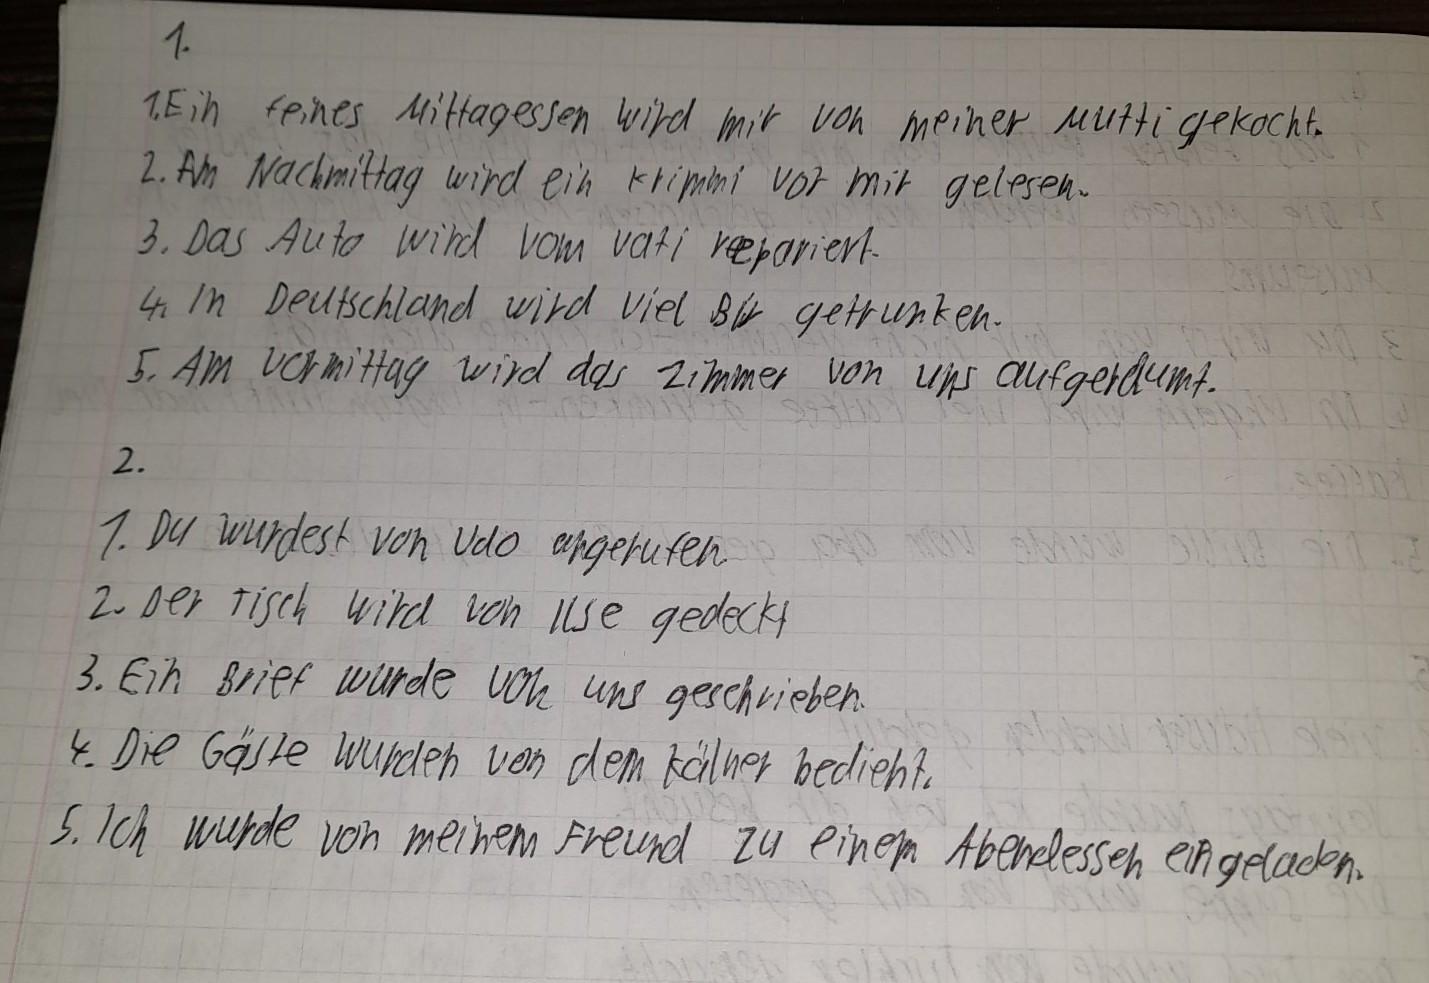 1.
1. Ein feines Mittagessen wird mir von meiner Mutti gekocht.
2. Am Nachmittag wird ein Krimmi vor mir gelesen.
3. Das Auto wird vom Vati repariert.
4. In Deutschland wird viel Bir getrunken.
5. Am Vormittag wird das Zimmer von uns aufgeräumt.
2.
1. Du wurdest von Udo angerufen.
2. Der Tisch wird von Ilse gedeckt
3. Ein Brief wurde von uns geschrieben.
4. Die Gäste wurden von dem Kälner bedient.
5. Ich wurde von meinem Freund zu einem Abendessen eingeladen.